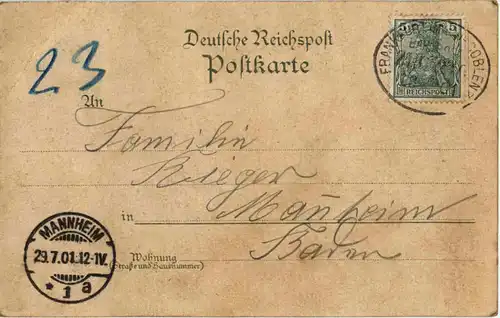 Deutsche Reichspost
Postkarte
23
5
REICHSPOST
FRANKFURT COBLENZ
An
Familie
Rieger
in Manheim
Baden
Wohnung
(Straße und Hausnummer)
MANNHEIM
29.7.01.12-1V.
* 1 a